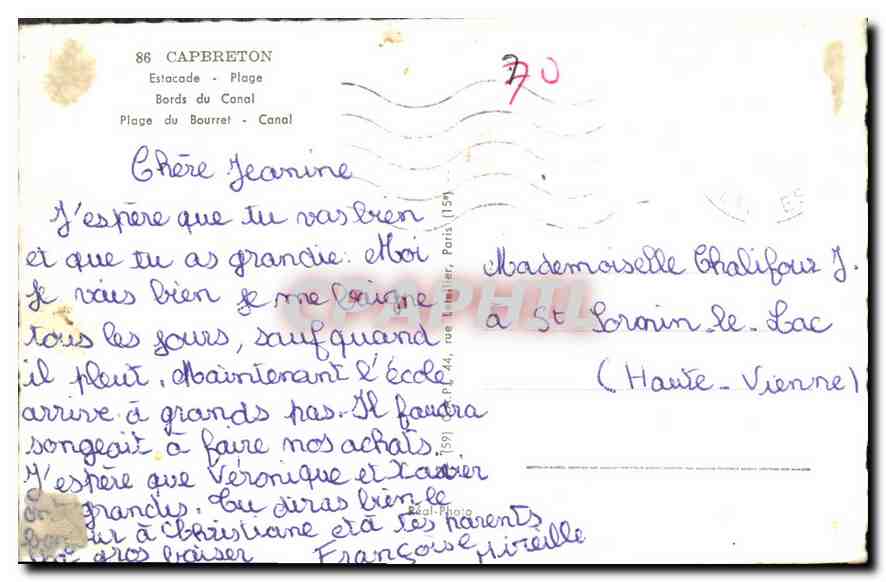 86 CAPBRETON
Estacade - Plage
Bords du Canal
Plage du Bourret - Canal
70
Chère Jeanine
J'espère que tu vas bien
et que tu as grandie. Moi
je vais bien je me baigne
tous les jours, sauf quand
il pleut. Maintenant l'école
arrive à grands pas. Il faudra
songeait à faire nos achats.
J'espère que Véronique et Xavier
ont grandis. Tu diras bien le
bonjour à Christiane et à tes parents
gros baiser Françoise Mireille
Mademoiselle Chalifour J.
à St Sornin-le-Lac
(Haute-Vienne)
44, rue Letellier, Paris (15e)
Réal-Photo
CPAPHIL